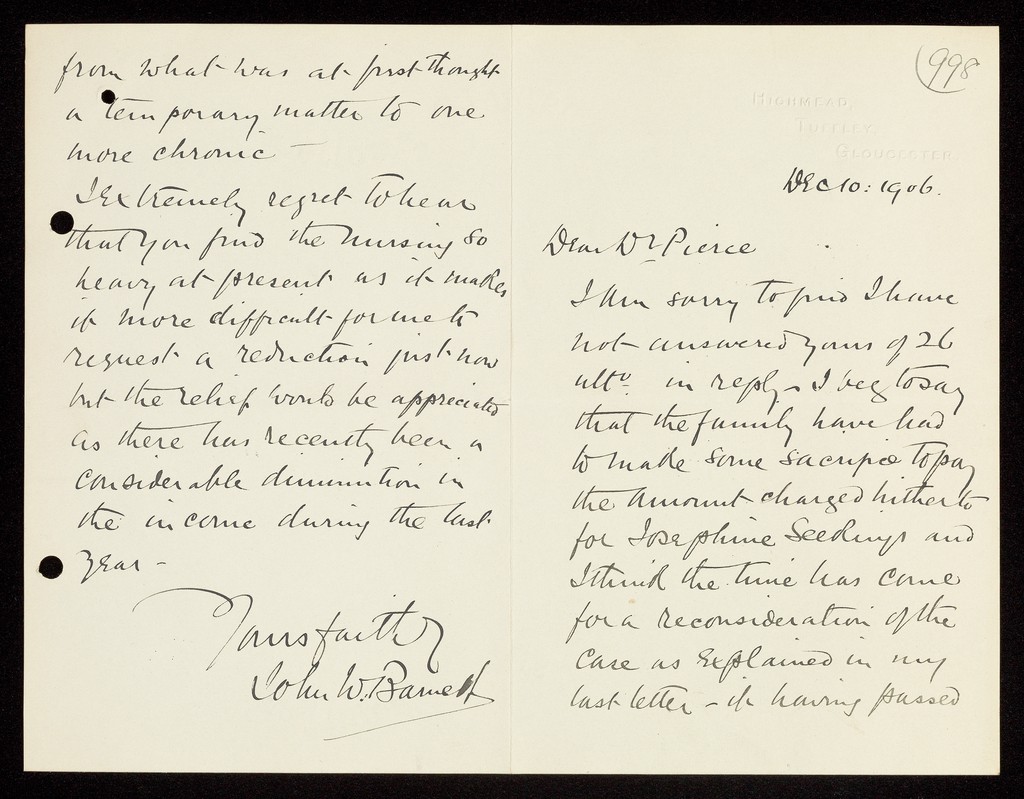 (998
HIGHMEAD,
TUFFLEY,
GLOUCESTER
Dec 10: 1906.
Dear Dr Pierce
I am sorry to find I have
not answered yours of 26
ulto. in reply - I beg to say
that the family have had
to make some sacrifice to pay
the amount charged hitherto
for Josephine Seedings and
I think the time has come
for a reconsideration of the
case as explained in my
last letter - it having passed
from what was at first thought
a temporary matter to one
more chronic -
I extremely regret to hear
that you find the nursing so
heavy at present as it makes
it more difficult for me to
request a reduction just now
but the relief would be appreciated
as there has recently been a
considerable diminution in
the income during the last
year -
Yours faithy
John W. Barnett